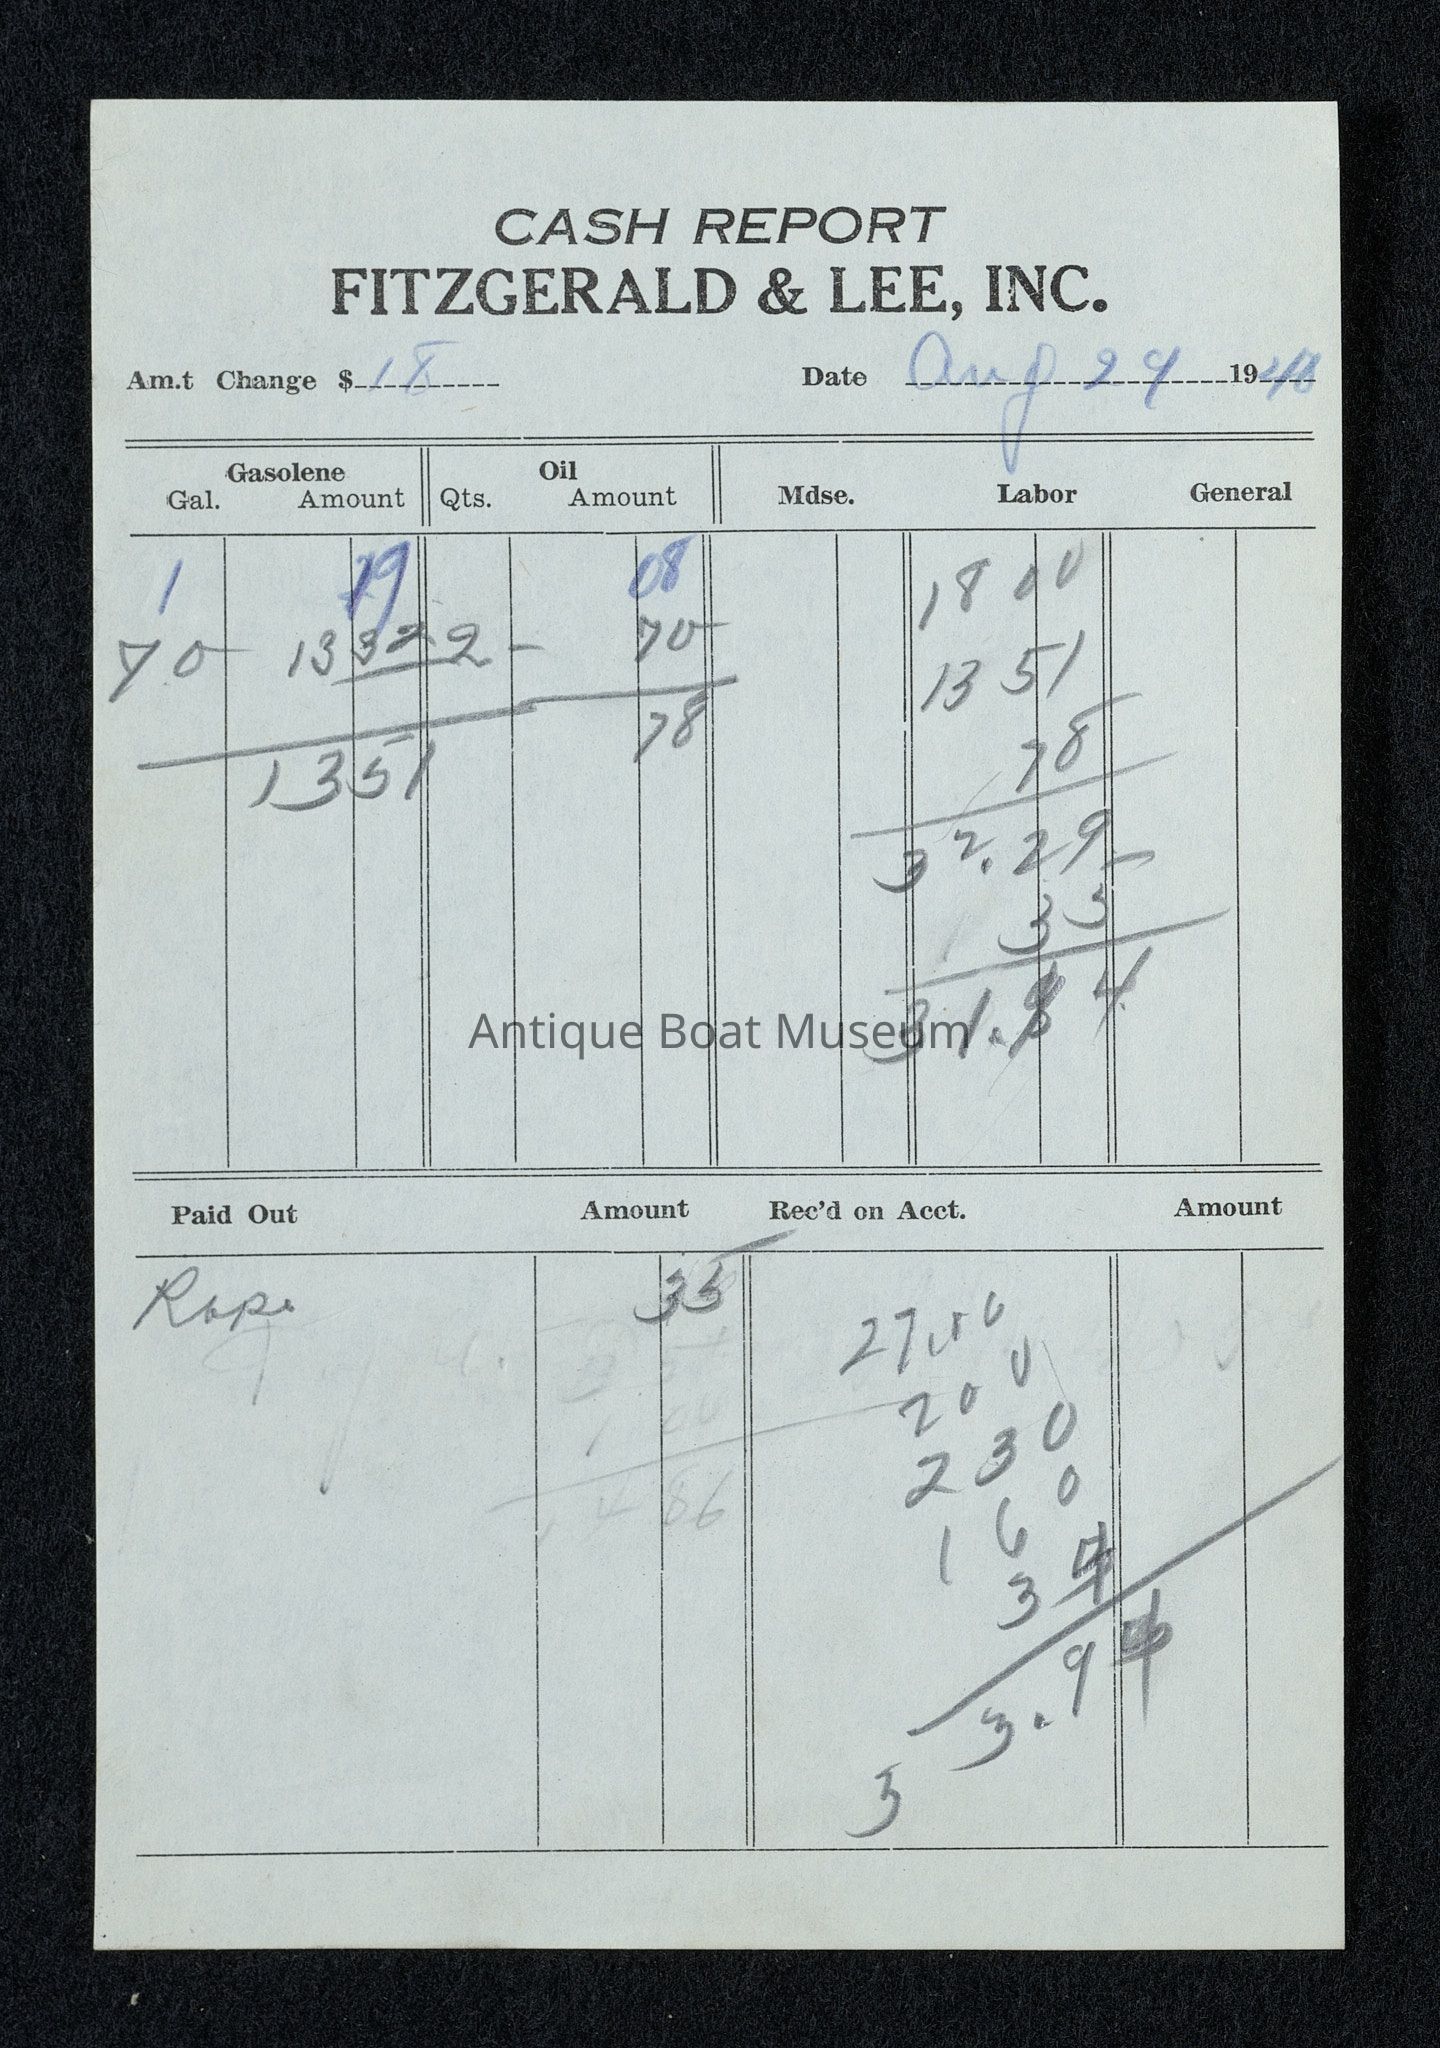 CASH REPORT
FITZGERALD & LEE, INC.
Am.t Change $ 18 Date Aug 29 19
Gasolene Oil
Gal. Amount Qts. Amount Mdse. Labor General
1 19 08 18 00
70 13 32 2 70 13 51
13 51 78 78
32.29
35
31.
Antique Boat Museum
Paid Out Amount Rec'd on Acct. Amount
Rope 35
27.00
2 0 0
2 3 0
1 6 0
3
3.9
3
1 00
4 86